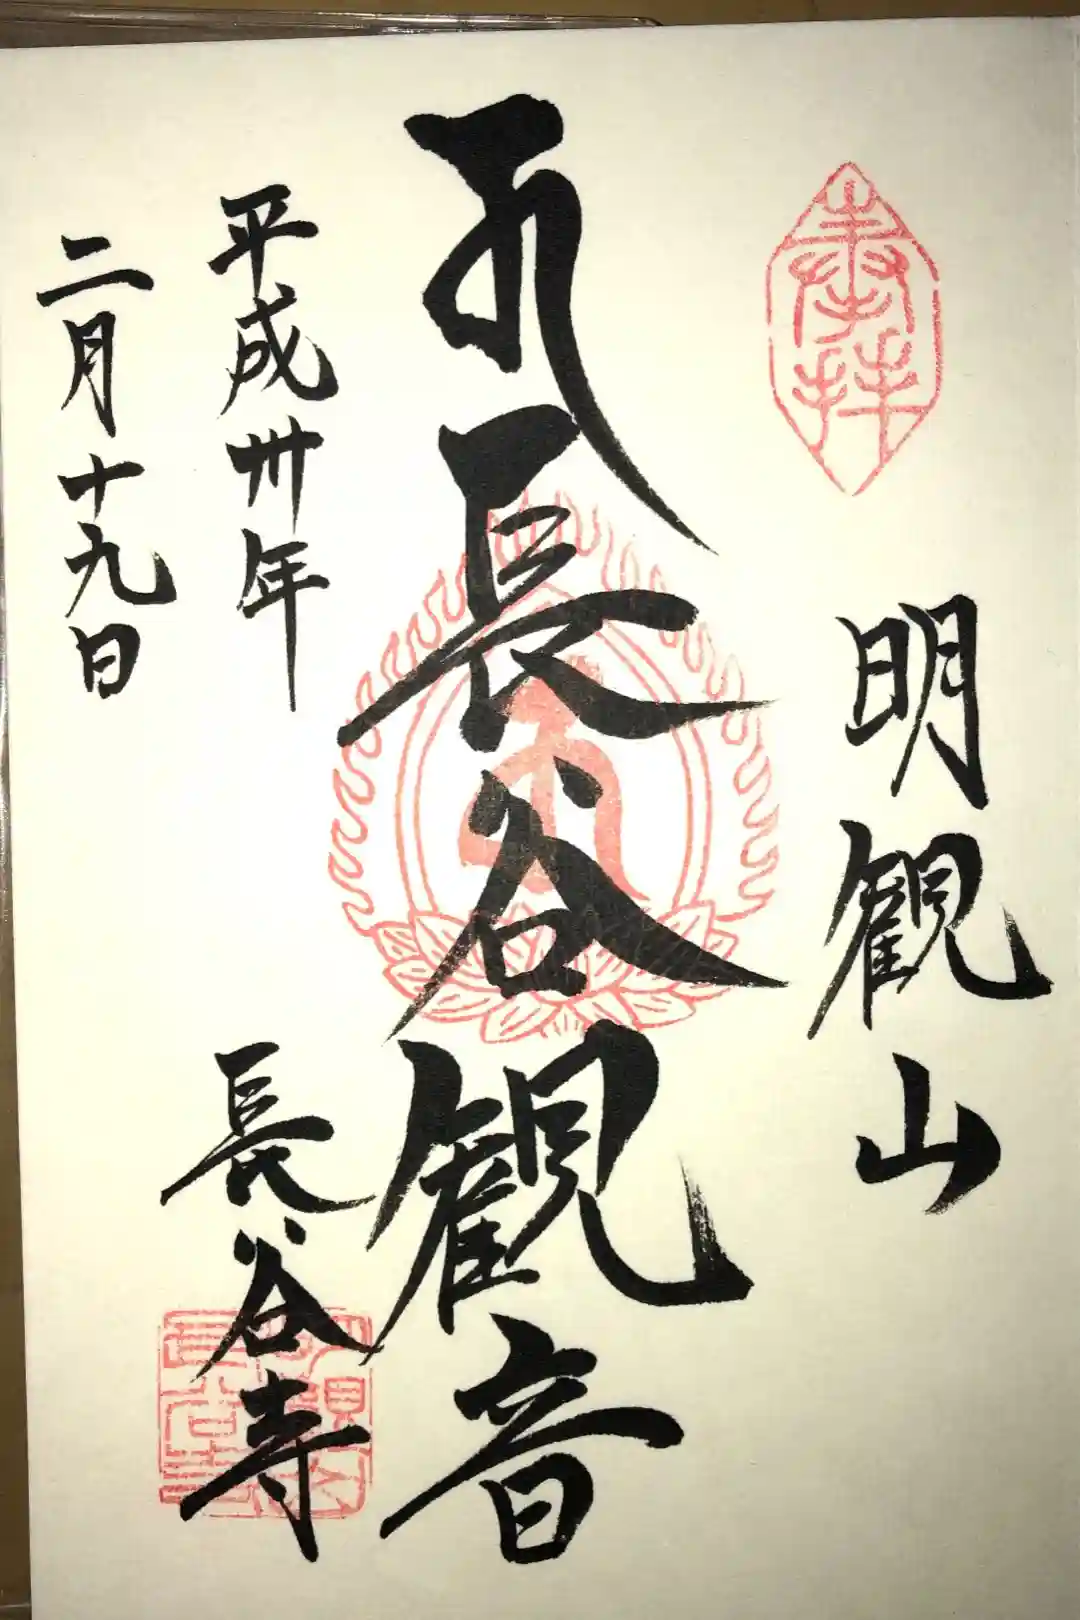 奉拝
明観山
𑖭長谷観音
平成卅年
二月十九日
長谷寺